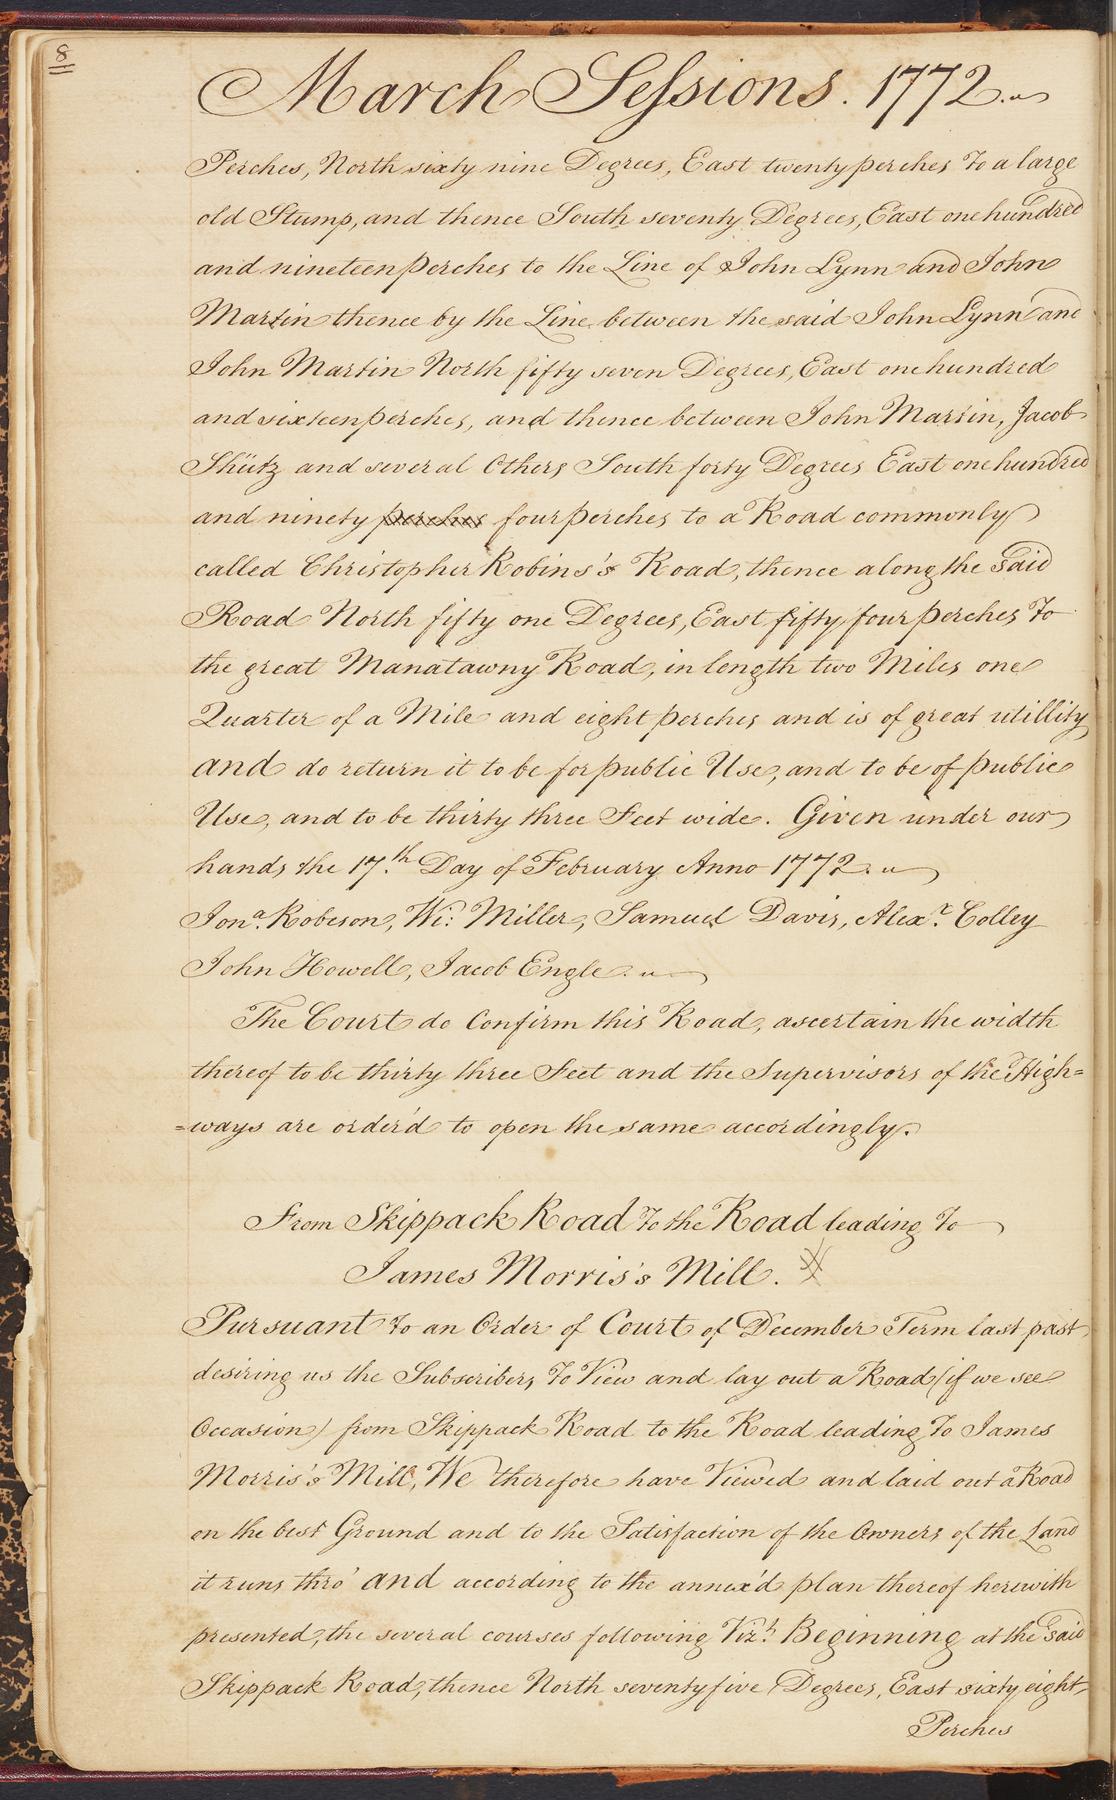 8
March Sessions. 1772.
Perches, North sixty nine Degrees, East twenty perches To a large
old Stump, and thence South seventy Degrees, East one hundred
and nineteen perches to the Line of John Lynn and John
Martin thence by the Line between the said John Lynn and
John Martin North fifty seven Degrees, East one hundred
and sixteen perches, and thence between John Martin, Jacob
Shütz and several Others South forty Degrees East one hundred
and ninety perches four perches to a Road commonly
called Christopher Robins's Road, thence along the said
Road North fifty one Degrees, East fifty four perches To
the great Manatawny Road, in length two Miles one
Quarter of a Mile and eight perches and is of great utillity
and do return it to be for public Use, and to be of public
Use, and to be thirty three Feet wide. Given under our
hands the 17.th Day of February Anno 1772.
Jona. Robeson, Wi: Miller, Samuel Davis, Alexr. Colley
John Howell, Jacob Engle.
The Court do Confirm this Road, ascertain the width
thereof to be thirty three Feet and the Supervisors of the High=
=ways are order'd to open the same accordingly.
From Skippack Road To the Road leading To
James Morris's Mill.
Pursuant To an Order of Court of December Term last past,
desiring us the Subscribers To View and lay out a Road (if we see
Occasion) from Skippack Road to the Road leading To James
Morris's Mill, We therefore have Viewed and laid out a Road
on the best Ground and to the Satisfaction of the Owners of the Land
it runs thro' and according to the annex'd plan thereof herewith
presented, the several courses following Vizt. Beginning at the said
Skippack Road, thence North seventy five Degrees, East sixty eight,
Perches